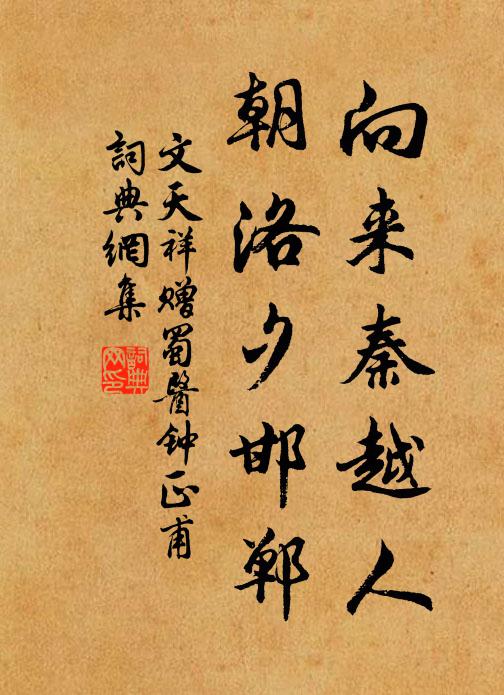 向来秦越人
朝洛夕邯郸
文天祥赠蜀醫钟正甫
詞典網集
詞典网印